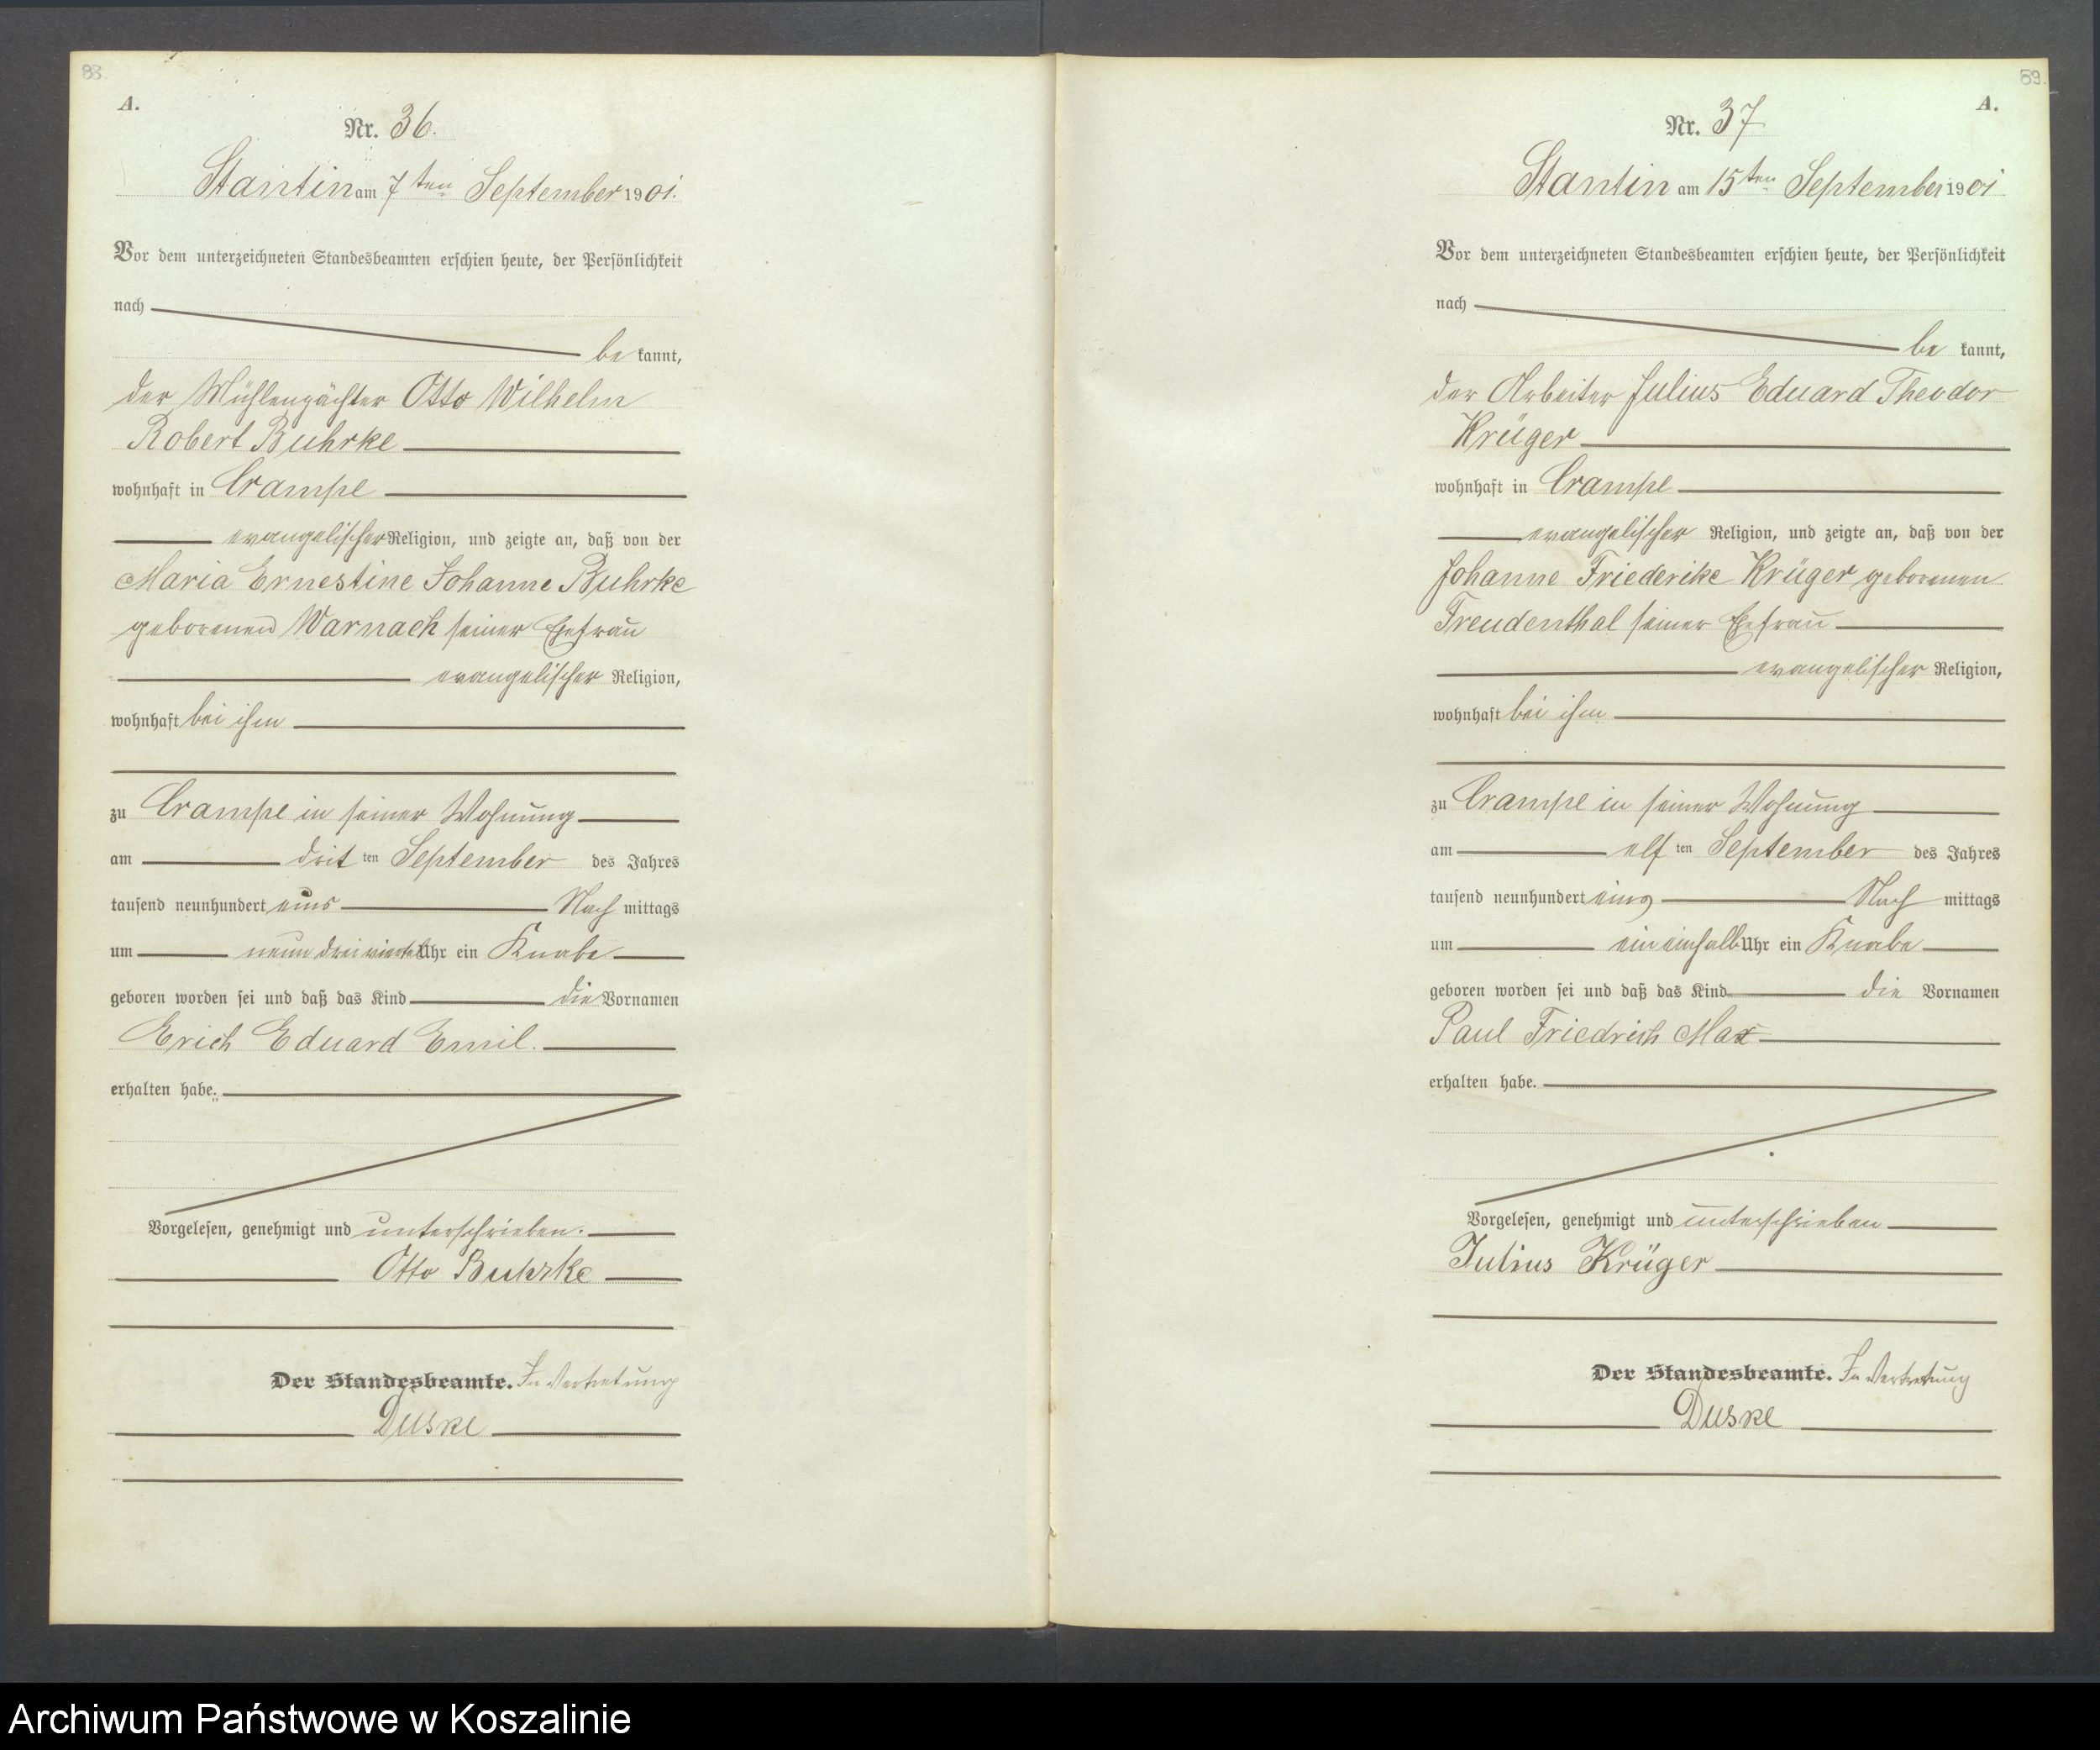 83.
A.
Nr. 36.
Stantin am 7ten September 1901.
Vor dem unterzeichneten Standesbeamten erschien heute, der Persönlichkeit
nach
be kannt,
der Mühlenpächter Otto Wilhelm
Robert Buhrke
wohnhaft in Crampe
evangelischer Religion, und zeigte an, daß von der
Maria Ernestine Johanne Buhrke
geborenen Warnach seiner Ehefrau
evangelischer Religion,
wohnhaft bei ihm
zu Crampe in seiner Wohnung
am drit ten September des Jahres
tausend neunhundert eins Nach mittags
um neun dreiviertel Uhr ein Knabe
geboren worden sei und daß das Kind die Vornamen
Erich Eduard Emil.
erhalten habe.
Vorgelesen, genehmigt und unterschrieben.
Otto Buhrke
Der Standesbeamte. In Vertretung
Duske
89.
A.
Nr. 37
Stantin am 15ten September 1901
Vor dem unterzeichneten Standesbeamten erschien heute, der Persönlichkeit
nach
be kannt,
der Arbeiter Julius Eduard Theodor
Krüger
wohnhaft in Crampe
evangelischer Religion, und zeigte an, daß von der
Johanne Friederike Krüger geborenen
Freudenthal seiner Ehefrau
evangelischer Religion,
wohnhaft bei ihm
zu Crampe in seiner Wohnung
am elf ten September des Jahres
tausend neunhundert eins Nach mittags
um ein einhalb Uhr ein Knabe
geboren worden sei und daß das Kind die Vornamen
Paul Friedrich Max
erhalten habe.
Vorgelesen, genehmigt und unterschrieben
Julius Krüger
Der Standesbeamte. In Vertretung
Duske
Archiwum Państwowe w Koszalinie